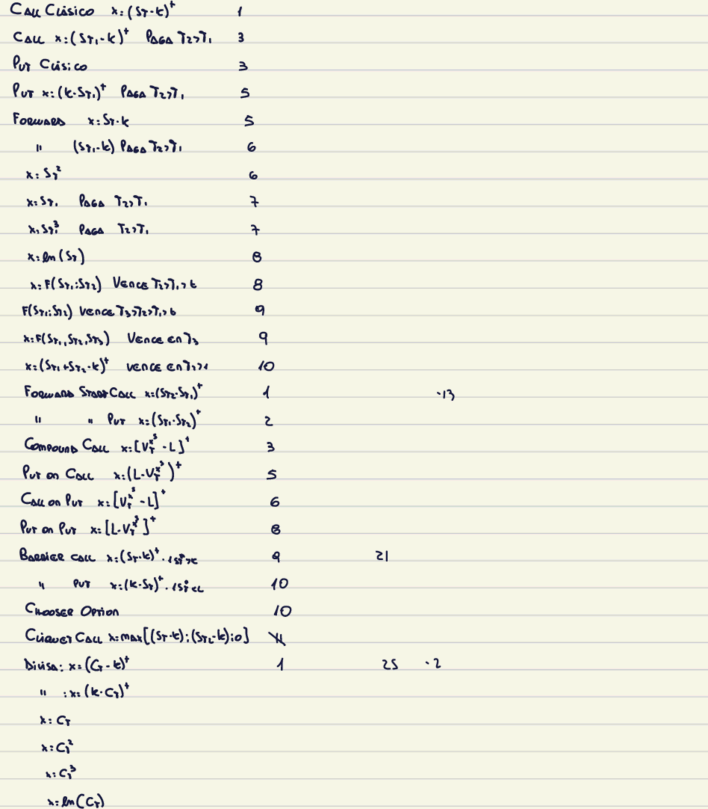 Call Clásico x:(S_T-k)^+ 1
Call x:(S_T1-k)^+ Paga T2>T1 3
Put Clásico 3
Put x:(k-S_T1)^+ Paga T2>T1 5
Forward x:S_T-k 5
" (S_T1-k) Paga T2>T1 6
x:S_T^2 6
x:S_T1 Paga T2>T1 7
x:S_T1^3 Paga T2>T1 7
x:ln(S_T) 8
x:F(S_T1;S_T2) Vence T2>T1>t 8
F(S_T1;S_T2) Vence T3>T2>T1>t 9
x:F(S_T1,S_T2,S_T3) Vence en T3 9
x:(S_T1+S_T2-k)^+ vence en 10
Forward Start Call x:(S_T2-S_T1)^+ 1 -13
" " Put x:(S_T1-S_T2)^+ 2
Compound Call x:[V_T -L]^+ 3
Put on Call x:(L-V_T )^+ 5
Call on Put x:[V_T -L]^+ 6
Put on Put x:[L-V_T ]^+ 8
Barrier call x:(S_T-k)^+. 9 21
" Put x:(k-S_T)^+. 10
Chooser Option 10
Cliquet Call x:max[(S_T-k);(S_T2-k);0]
Divisa: x:(C_T-k)^+ 1 25 -2
" : x:(k-C_T)^+
x:C_T
x:C_T^2
x:C_T^3
x:ln(C_T)